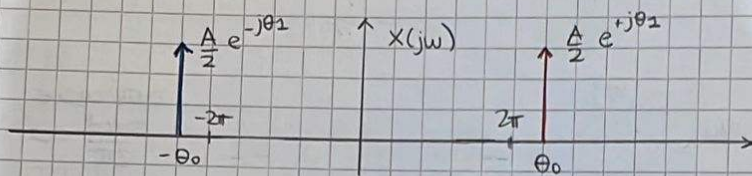 A/2 e^{-jθ1} X(jω) A/2 e^{+jθ1}
-2π 2π
-θ0 θ0